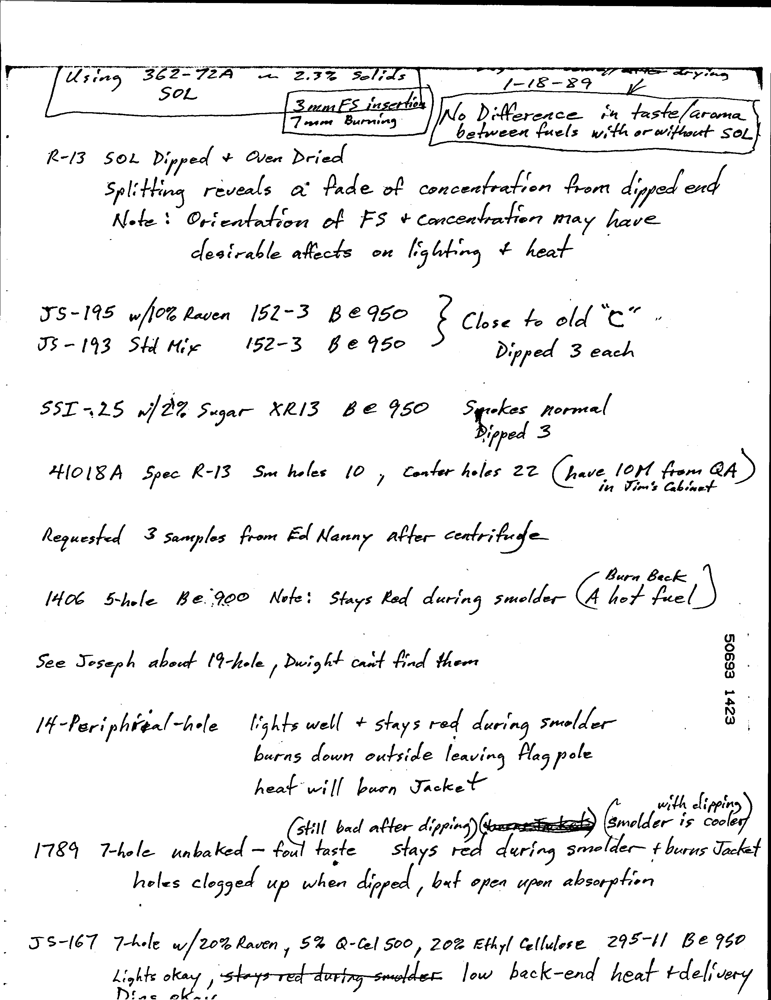 Using 362-72A ~ 2.3% Solids
SOL
drying
1-18-89
3mm FS insertion
7mm Burning
No Difference in taste/aroma
between fuels with or without SOL
R-13 SOL Dipped + Oven Dried
Splitting reveals a fade of concentration from dipped end
Note: Orientation of FS + concentration may have
desirable affects on lighting + heat
JS-195 w/10% Raven 152-3 B@950
JS-193 Std Mix 152-3 B@950
Close to old "C"
Dipped 3 each
SSI-25 w/2% Sugar XR13 B@950 Smokes normal
Dipped 3
41018A Spec R-13 Sm holes 10, Center holes 22 (have 10M from QA)
in Jim's Cabinet
Requested 3 samples from Ed Nanny after centrifuge
1406 5-hole B@900 Note: Stays Red during smolder (Burn Back
A hot fuel)
See Joseph about 19-hole, Dwight can't find them
50693 1423
14-Periphrial-hole lights well + stays red during smolder
burns down outside leaving flagpole
heat will burn Jacket
(still bad after dipping) (with dipping
smolder is cooler)
1789 7-hole unbaked - foul taste stays red during smolder + burns Jacket
holes clogged up when dipped, but open upon absorption
JS-167 7-hole w/20% Raven, 5% Q-Cel 500, 20% Ethyl Cellulose 295-11 B@950
Lights okay, stays red during smolder low back-end heat + delivery